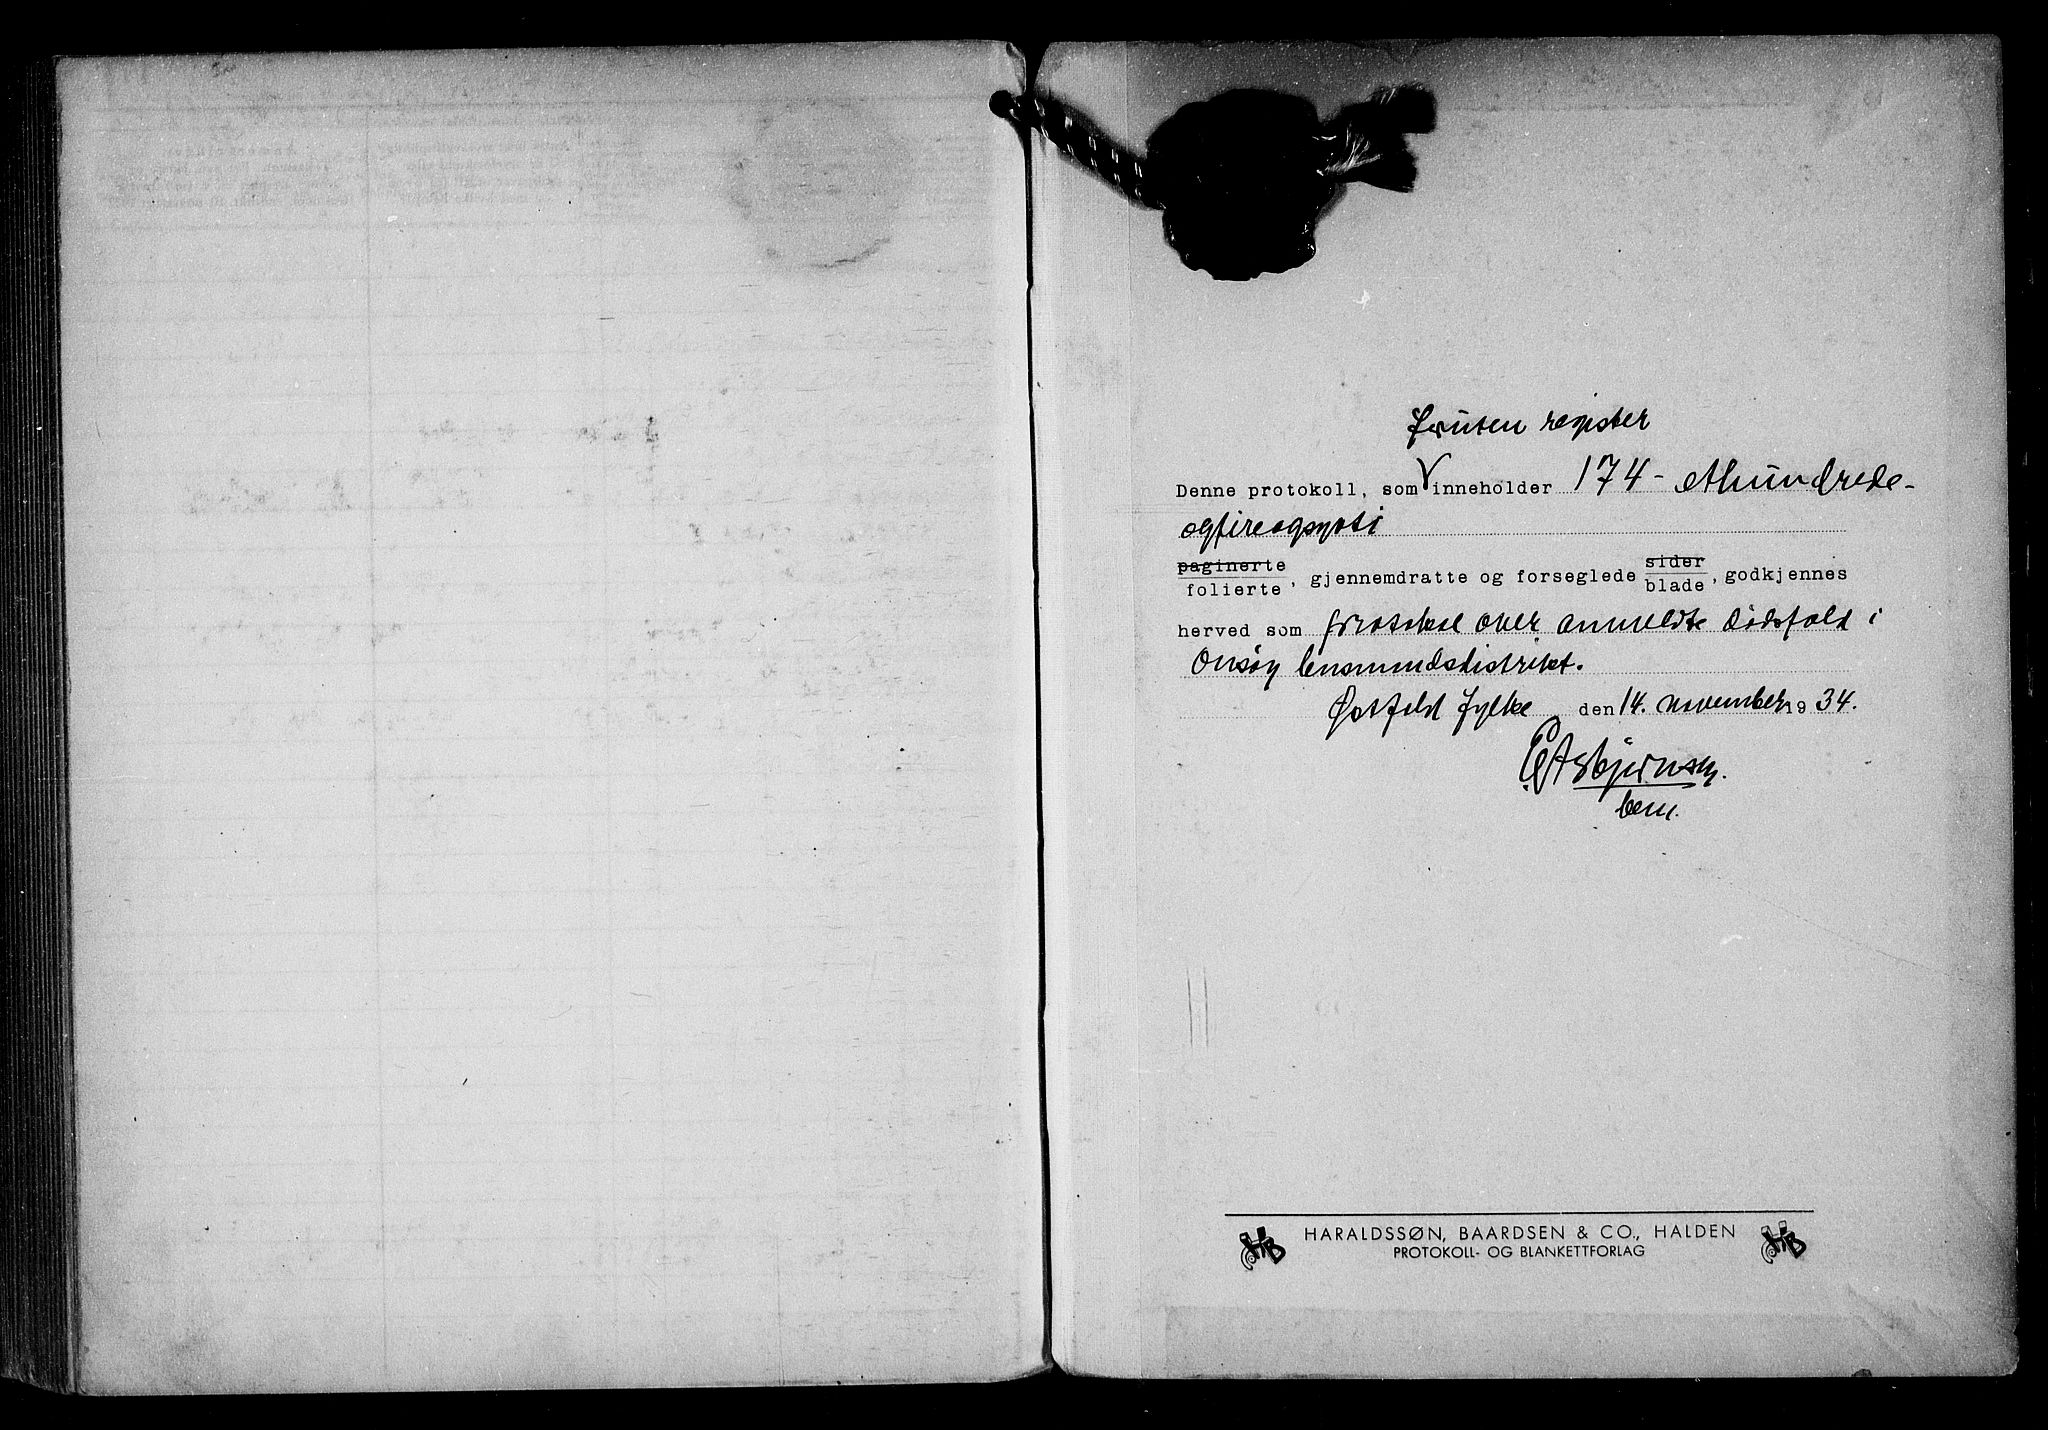 foruten register
Denne protokoll, som inneholder 174 - ethundrede-
ogfireogsyvti
paginerte
folierte, gjennemdratte og forseglede sider
blade, godkjennes
herved som protokol over anmeldte dødsfald i
Onsøy lensmandsdistrikt.
Østfold fylke den 14. november 1934.
Asbjørnsen.
HARALDSSØN, BAARDSEN & CO., HALDEN
PROTOKOLL- OG BLANKETTFORLAG